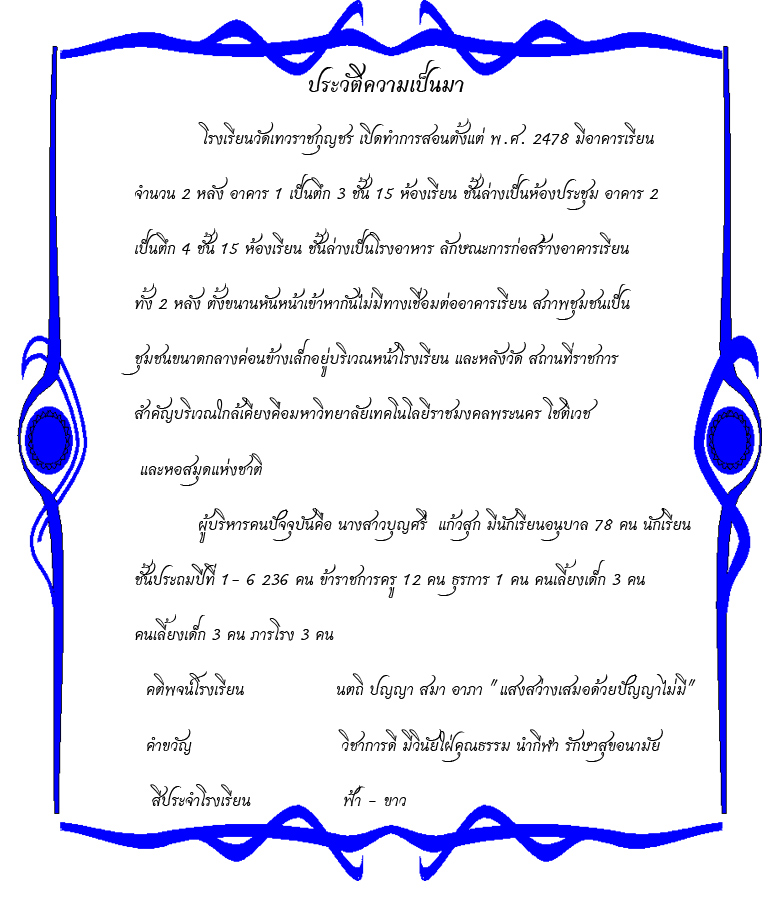 ประวัติความเป็นมา
โรงเรียนวัดเทวราชกุญชร เปิดทำการสอนตั้งแต่ พ.ศ. 2478 มีอาคารเรียน
จำนวน 2 หลัง อาคาร 1 เป็นตึก 3 ชั้น 15 ห้องเรียน ชั้นล่างเป็นห้องประชุม อาคาร 2
เป็นตึก 4 ชั้น 15 ห้องเรียน ชั้นล่างเป็นโรงอาหาร ลักษณะการก่อสร้างอาคารเรียน
ทั้ง 2 หลัง ตั้งขนานหันหน้าเข้าหากันไม่มีทางเชื่อมต่ออาคารเรียน สภาพชุมชนเป็น
ชุมชนขนาดกลางค่อนข้างเล็กอยู่บริเวณหน้าโรงเรียน และหลังวัด สถานที่ราชการ
สำคัญบริเวณใกล้เคียงคือมหาวิทยาลัยเทคโนโลยีราชมงคลพระนคร โชติเวช
และหอสมุดแห่งชาติ
ผู้บริหารคนปัจจุบันคือ นางสาวบุญศรี แก้วสุก มีนักเรียนอนุบาล 78 คน นักเรียน
ชั้นประถมปีที่ 1- 6 236 คน ข้าราชการครู 12 คน ธุรการ 1 คน คนเลี้ยงเด็ก 3 คน
คนเลี้ยงเด็ก 3 คน ภารโรง 3 คน
คติพจน์โรงเรียน นตถิ ปญญา สมา อาภา "แสงสว่างเสมอด้วยปัญญาไม่มี"
คำขวัญ วิชาการดี มีวินัยใฝ่คุณธรรม นำกีฬา รักษาสุขอนามัย
สีประจำโรงเรียน ฟ้า - ขาว